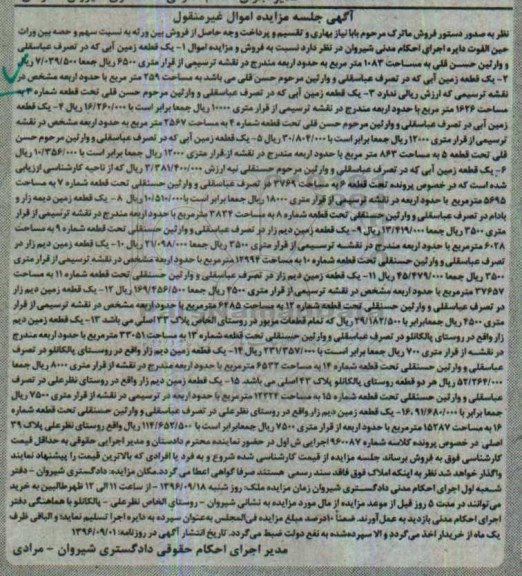 آگهی جلسه مزایده اموال غیرمنقول
نظر به صدور دستور فروش ماترک مرحوم بابا نیاز بهاری و تقسیم و پرداخت وجه حاصل از فروش بین ورثه به نسبت سهم و حصه بین وراث
حین الفوت دایره اجرای احکام مدنی شیروان در نظر دارد نسبت به فروش و مزایده اموال ۱- یک قطعه زمین آبی که در تصرف عباسقلی
و وارثین حسن قلی به مساحت ۱۰۸۳ متر مربع به حدود اربعه مندرجه در نقشه ترسیمی از قرار متری ۶۵۰۰ ریال جمعا ۷/۰۳۹/۵۰۰ ریال
۲- یک قطعه زمین آبی که در تصرف عباسقلی و وارثین مرحوم حسن قلی می باشد به مساحت ۲۵۹ متر مربع با حدود اربعه مشخص در
نقشه ترسیمی که ارزش ریالی ندارد ۳- یک قطعه زمین آبی که در تصرف عباسقلی و وارثین مرحوم حسن قلی تحت قطعه شماره ۳ به
مساحت ۱۶۲۶ متر مربع با حدود اربعه مندرج در نقشه ترسیمی از قرار متری ۱۰۰۰۰ ریال جمعا برابر است با ۱۶/۲۶۰/۰۰۰ ریال ۴- یک قطعه
زمین آبی در تصرف عباسقلی و وارثین مرحوم حسن قلی تحت قطعه شماره ۴ به مساحت ۲۵۶۷ متر مربع به حدود اربعه مشخص در نقشه
ترسیمی از قرار متری ۱۲۰۰۰ ریال جمعا برابر است با ۳۰/۸۰۴/۰۰۰ ریال ۵- یک قطعه زمین آبی که در تصرف عباسقلی و وارثین مرحوم حسن
قلی تحت قطعه ۵ به مساحت ۸۶۳ متر مربع با حدود اربعه مندرج در نقشه از قرار متری ۱۲۰۰۰ ریال جمعا برابر است با ۱۰/۳۵۶/۰۰۰ ریال
۶- یک قطعه زمین آبی که در تصرف عباسقلی و وارثین مرحوم حسنقلی نیه ارزش ۳/۳۸۱/۴۰۰/۰۰۰ ریال که از ناحیه کارشناسی ارزیابی
شده است که در خصوص پرونده تحت قطعه ۶ به مساحت ۳۷۶۹ در تصرف عباسقلی و وارثین حسنقلی تحت قطعه شماره ۷ به مساحت
۵۶۹۵ مترمربع با حدود اربعه در نقشه ترسیمی از قرار متری ۱۸۰۰۰ ریال جمعا برابر است با ۱۰/۵۱۰/۰۰۰ ریال ۸- یک قطعه زمین دیمه زار و
بادام در تصرف عباسقلی و وارثین حسنقلی تحت قطعه شماره ۸ به مساحت ۳۸۳۴ مترمربع با حدود اربعه مندرج در نقشه ترسیمی از قرار
متری ۳۵۰۰ ریال جمعا ۱۳/۴۱۹/۰۰۰ ریال ۹- یک قطعه زمین دیم زار در تصرف عباسقلی و وارثین حسنقلی تحت قطعه شماره ۹ به مساحت
۶۰۲۸ مترمربع با حدود اربعه مندرج در نقشه ترسیمی از قرار متری ۳۵۰۰ ریال جمعا ۲۱/۰۹۸/۰۰۰ ریال ۱۰- یک قطعه زمین دیم زار در
تصرف عباسقلی و وارثین حسنقلی تحت قطعه شماره ۱۰ به مساحت ۱۲۹۹۴ مترمربع با حدود اربعه مشخص در نقشه ترسیمی از قرار متری
۳۵۰۰ ریال جمعا ۴۵/۴۷۹/۰۰۰ ریال ۱۱- یک قطعه زمین دیم زار در تصرف عباسقلی و وارثین حسنقلی تحت قطعه شماره ۱۱ به مساحت
۳۷۶۵۷ مترمربع با حدود اربعه مشخص در نقشه ترسیمی از قرار متری ۴۵۰۰ ریال جمعا ۱۶۹/۴۵۶/۵۰۰ ریال ۱۲- یک قطعه زمین دیم زار
در تصرف عباسقلی و وارثین حسنقلی تحت قطعه شماره ۱۲ به مساحت ۶۴۸۵ مترمربع با حدود اربعه مشخص در نقشه ترسیمی از قرار
متری ۴۵۰۰ ریال جمعا برابر با ۲۹/۱۸۲/۵۰۰ ریال که تمام قطعات مزبور در روستای الخاص پلاک ۳۳ اصلی می باشد ۱۳- یک قطعه زمین دیم
زار واقع در روستای یالکانلو در تصرف عباسقلی و وارثین حسنقلی تحت قطعه شماره ۱۳ به مساحت ۳۳۰۵۱ مترمربع با حدود اربعه مندرج
در نقشه از قرار متری ۷۰۰ ریال جمعا برابر است با ۲۳۱/۳۵۷/۰۰۰ ریال ۱۴- یک قطعه زمین دیم زار واقع در روستای یالکانلو در تصرف
عباسقلی و وارثین حسنقلی تحت قطعه شماره ۱۴ به مساحت ۶۵۳۳ مترمربع با حدود اربعه مندرج در نقشه از قرار متری ۸۰۰۰ ریال جمعا
۵۲/۲۶۴/۰۰۰ ریال هر دو قطعه روستای یالکانلو پلاک ۴۳ اصلی می باشد. ۱۵- یک قطعه زمین دیم زار واقع در روستای نظرعلی در تصرف
عباسقلی و وارثین حسنقلی تحت قطعه شماره ۱۵ به مساحت ۱۲۲۲۴ مترمربع با حدود اربعه در ترسیمی در نقشه از قرار متری ۷۵۰۰ ریال
جمعا برابر با ۹۱/۶۸۰/۰۰۰ ۱۶- یک قطعه زمین دیم زار واقع در روستای نظرعلی در تصرف عباسقلی و وارثین حسنقلی تحت قطعه شماره
۱۶ به مساحت ۱۵۲۸۷ مترمربع با حدود اربعه از قرار متری ۷۵۰۰ ریال جمعا برابر است با ۱۱۴/۶۵۲/۵۰۰ ریال واقع روستای نظرعلی پلاک ۳۹
اصلی در خصوص پرونده کلاسه شماره ۹۶۰۰۸۷ اجرایی ش اول در حضور نماینده محترم دادستان و مدیر اجرایی حقوقی به حداقل قیمت
کارشناسی فوق به فروش برساند جلسه مزایده از قیمت کارشناسی شده شروع و به فرد یا افرادی که بالاترین قیمت را پیشنهاد نمایند
واگذار خواهد شد نظر به اینکه املاک فوق فاقد سند رسمی هستند صرفا گواهی اعطا می گردد. مکان مزایده: دادگستری شیروان - دفتر
شعبه اول اجرای احکام مدنی دادگستری شیروان زمان مزایده ملک: روز شنبه ۱۳۹۶/۰۹/۱۸ - از ساعت ۱۱ الی ۱۲ ظهر طالبین به خرید
می‌توانند در مدت ۵ روز قبل از موعد مزایده از مال مورد مزایده به نشانی شیروان - روستای الخاص نظرعلی - یالکانلو با هماهنگی دفتر
اجرای احکام مدنی بازدید به عمل آورند. ضمناً ۱۰درصد مبلغ مزایده فی‌المجلس به‌عنوان سپرده به دایره اجرا تسلیم نماید؛ و الباقی ظرف
یک ماه از خریدار اخذ می‌گردد و الا سپرده‌شده به نفع دولت ضبط می‌گردد. تاریخ انتشار آگهی در روزنامه: ۱۳۹۶/۰۹/۰۱
مدیر اجرای احکام حقوقی دادگستری شیروان - مرادی